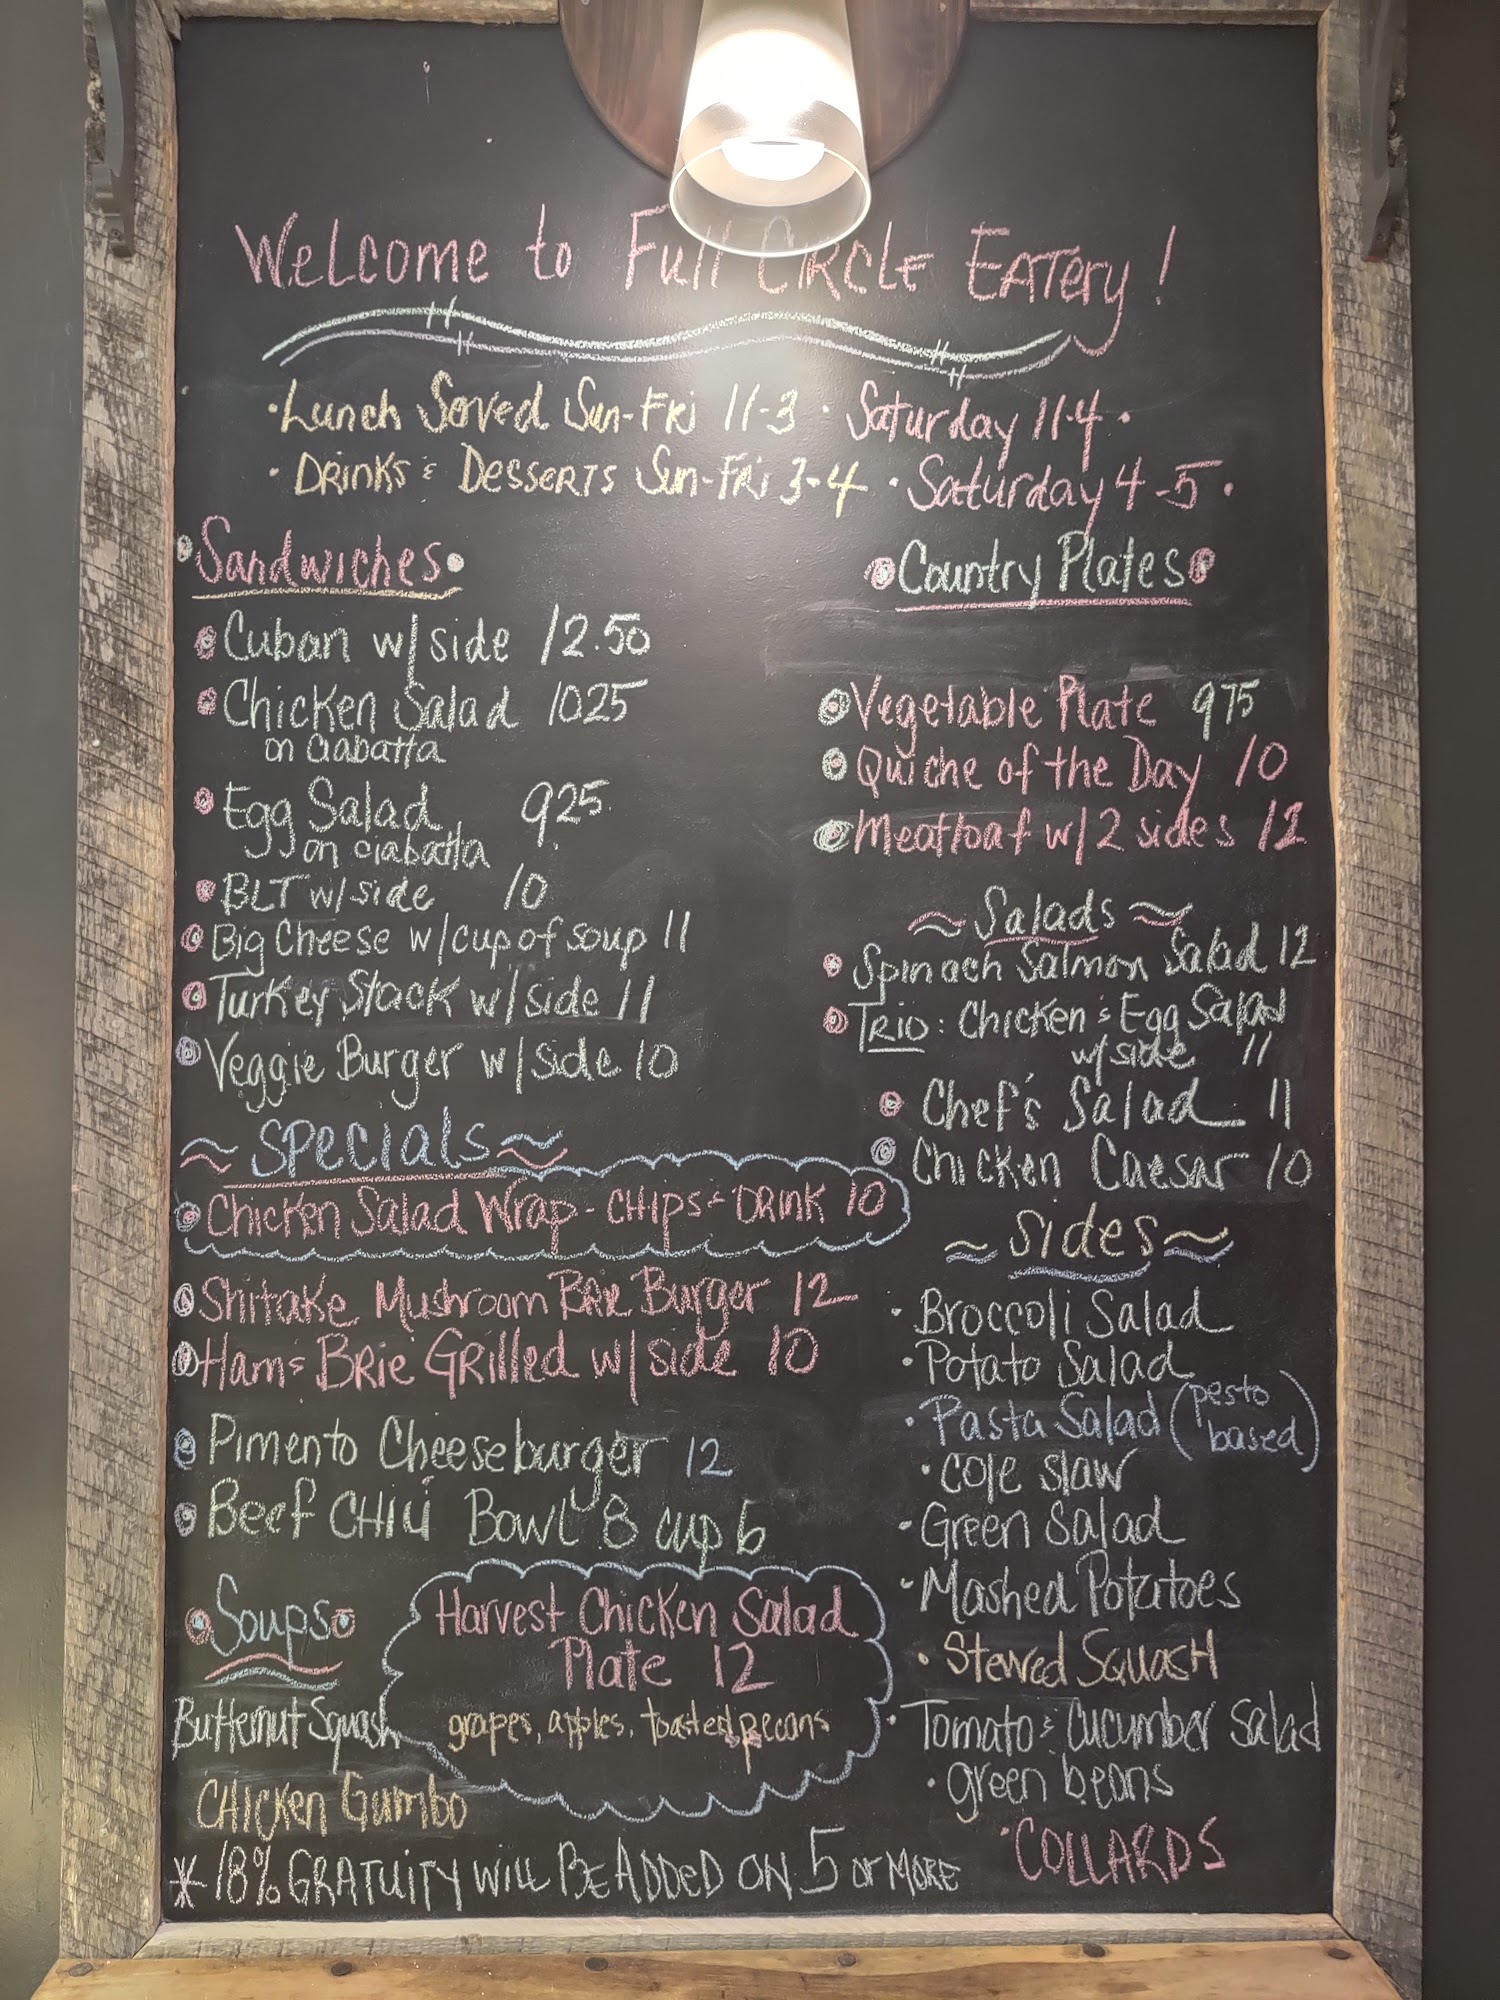 Welcome to Full Circle Eatery!
• Lunch Served Sun-Fri 11-3 • Saturday 11-4 •
• Drinks & Desserts Sun-Fri 3-4 • Saturday 4-5 •
• Sandwiches •
Cuban w/side 12.50
Chicken Salad 1025
on Ciabatta
Egg Salad 925
on ciabatta
BLT w/side 10
Big Cheese w/cup of soup 11
Turkey Stack w/side 11
Veggie Burger w/side 10
~ Specials ~
Chicken Salad Wrap - chips & Drink 10
Shitake Mushroom Brie Burger 12
Ham & Brie Grilled w/side 10
Pimento Cheeseburger 12
Beef Chili Bowl 8 cup 6
Soups
Butternut Squash
Chicken Gumbo
Harvest Chicken Salad
Plate 12
grapes, apples, toasted pecans
Country Plates
Vegetable Plate 975
Quiche of the Day 10
Meatloaf w/2 sides 12
~ Salads ~
Spinach Salmon Salad 12
Trio: Chicken & Egg Salad
w/side 11
Chef's Salad 11
Chicken Caesar 10
~ Sides ~
• Broccoli Salad
• Potato Salad
• Pasta Salad (pesto
based)
• Cole slaw
• Green Salad
• Mashed Potatoes
• Stewed Squash
• Tomato & Cucumber Salad
• green beans
• COLLARDS
* 18% Gratuity will be added on 5 or more